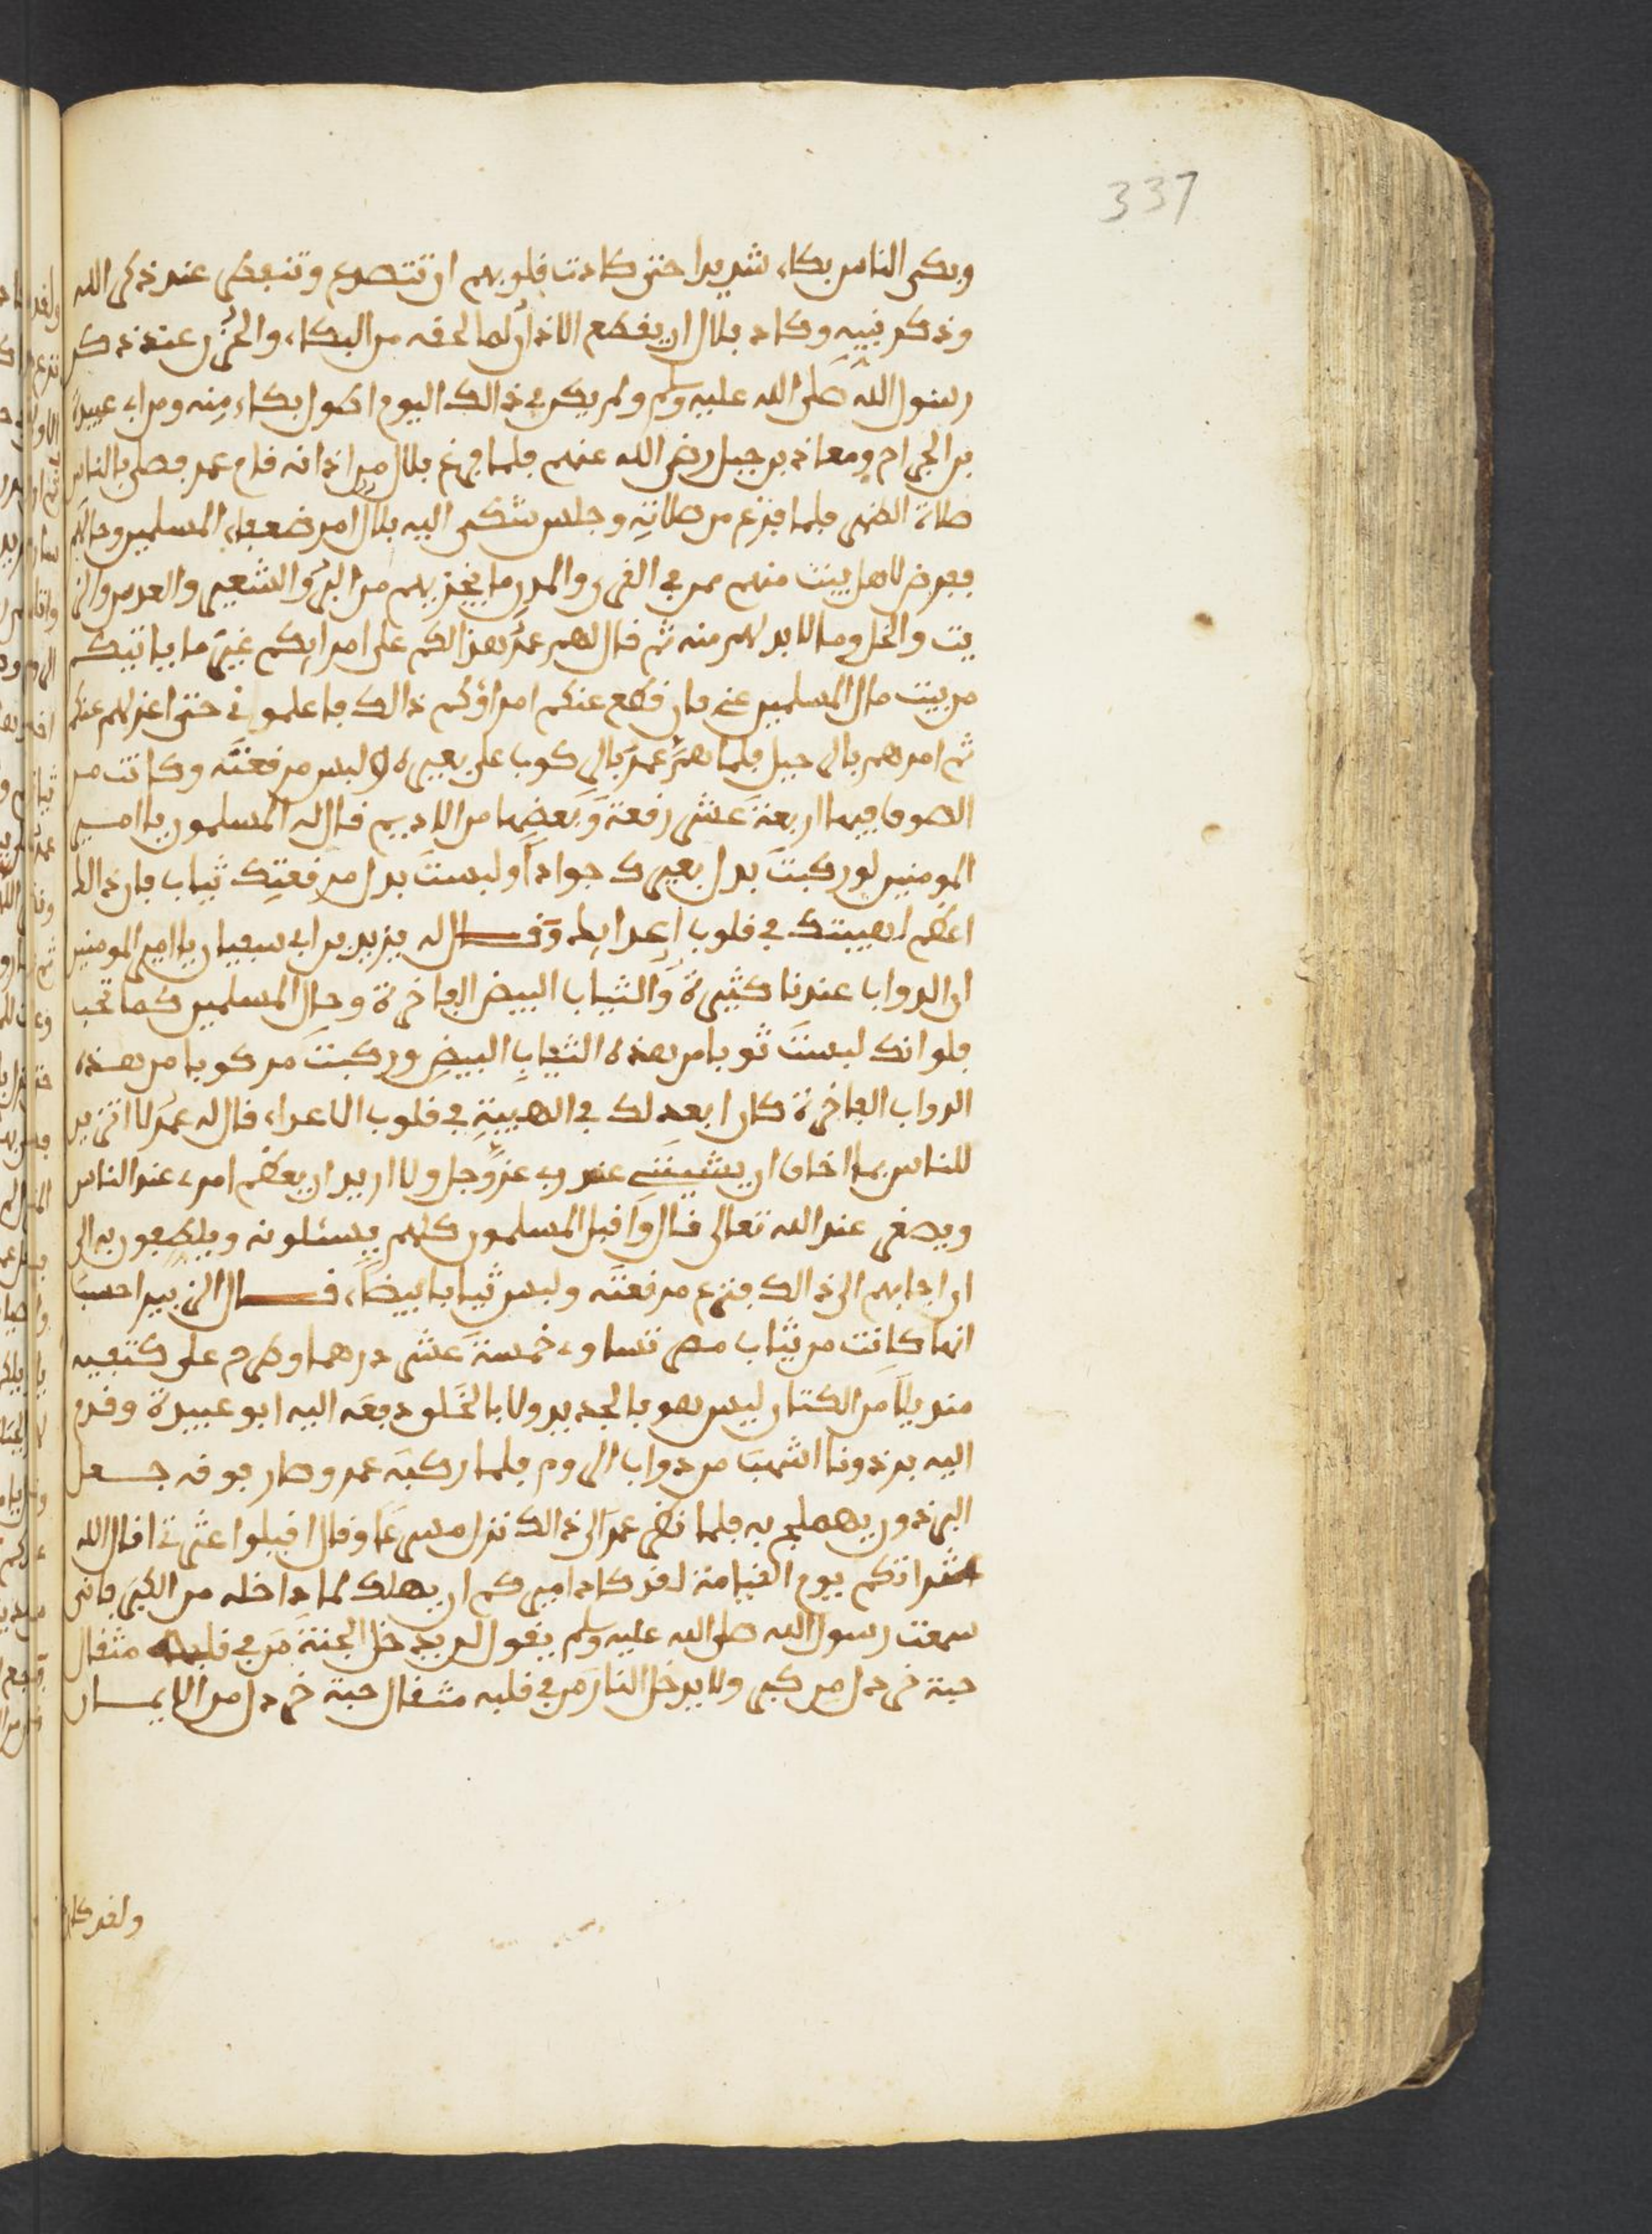 337
وبكى الناس بكاء شديدا حتى كادت قلوبهم ان تتصدع وتنفطر عند ذكر الله
وذكر نبيه وكاد بلال ان يقطع الاذان لما لحقه من البكاء والحزن عند ذكر
رسول الله صلى الله عليه وسلم ولم يكن في ذالك اليوم اطول بكاء منه ومن ابي عبيدة
بن الجراح ومعاذ بن جبل رضي الله عنهم فلما فرغ بلال من اذانه قام عمر فصلى بالناس
صلاة الظهر فلما فرغ من صلاته وجلس شكى اليه بلال امر ضعفاء المسلمين وحالهم
ففرض لاهل بيت منهم ممن في القرى والمدن ما يجزيهم من البر والشعير والعدس والز
يت والخل وما لا بد لهم منه ثم قال لهم عمر هذا لكم على امرايكم غير ما ياتيكم
من بيت مال المسلمين عنى فان قطع عنكم امراؤكم ذالك فاعلموني حتى اعزلهم عنكم
ثم امرهم بالرحيل فلما هم عمر بالركوب على بعيره لبس مرقعته وكانت من
الصوف فيها اربعة عشر رقعة وبعضها من الاديم فقال له المسلمون يا امير
المومنين لو ركبت بدل بعيرك جوادا ولبست بدل مرقعتك ثياب فان ذالك
اعظم لهيبتك في قلوب اعدايك وقال له يزيد بن ابي سفيان يا امير المومنين
ان الدواب عندنا كثيرة والثياب البيض الفاخرة وحال المسلمين كما تحب
فلو انك لبست ثوبا من هذه الثياب البيض وركبت مركوبا من هذه
الدواب الفاخرة كان ابعد لك في الهيبة في قلوب الاعداء قال له عمر لا اتزين
للناس بما اخاف ان يشينني عند ربي عز وجل ولا اريد ان يعظم امري عند الناس
ويصغر عند الله تعالى قال واقبل المسلمون كلهم يسئلونه ويلطفون به الى
ان اجابهم الى ذالك فنزع مرقعته ولبس ثيابا بيضا قال الزبير احسب
انها كانت من ثياب مصر تساوي خمسة عشر درهما وطرح على كتفيه
منديلا من الكتان ليس هو بالجديد ولا بالخلو دفعه اليه ابو عبيدة وقدم
اليه برذونا اشهب من دواب الروم فلما ركبه عمر وصار فوقه جعل
البرذون يهملج به فلما نظر عمر الى ذالك نزل مسرعا وقال اقيلوا عثرتي اقال الله
عثراتكم يوم القيامة لقد كاد اميركم ان يهلك لما داخله من الكبر فاني
سمعت رسول الله صلى الله عليه وسلم يقول لن يدخل الجنة من في قلبه مثقال
حبة خردل من كبر ولا يدخل النار من في قلبه مثقال حبة خردل من الايمان
ولقد كاد